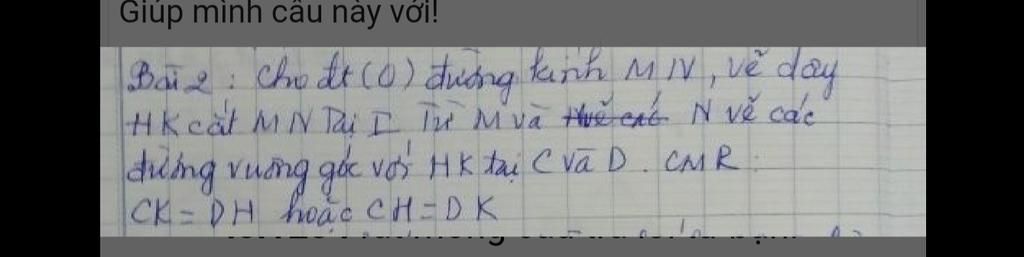 Giúp mình câu này với!
Bài 2 : Cho đt (O) đường kính MN, vẽ dây
HK cắt MN Tại I Từ M và N vẽ các
đường vuông góc với HK tại C và D. CMR :
CK = DH hoặc CH = DK